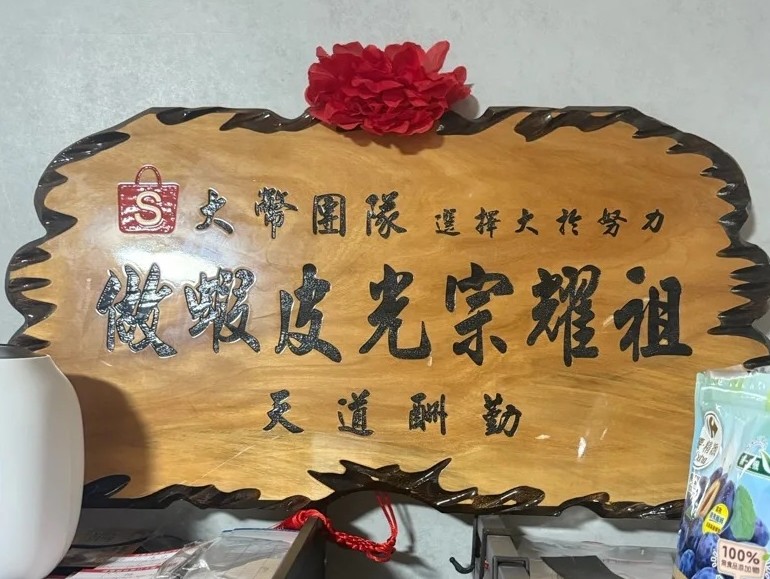 S 大幣團隊 選擇大於努力
做蝦皮光宗耀祖
天道酬勤
100%
無食品添加物